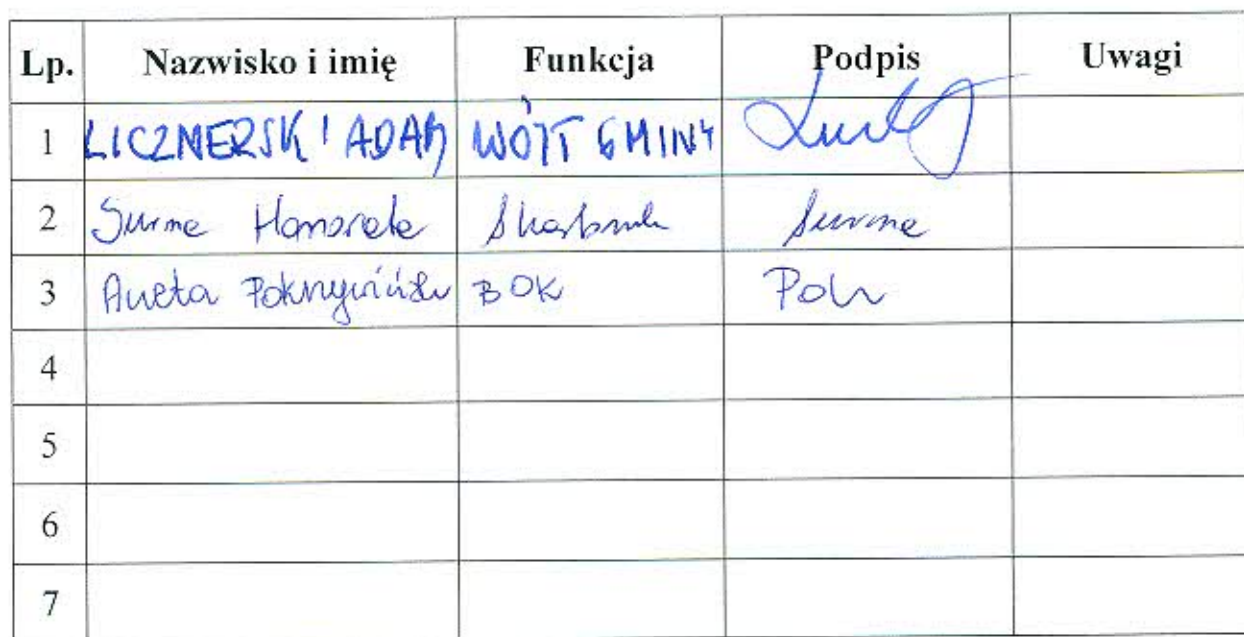 Lp. Nazwisko i imię Funkcja Podpis Uwagi
1 LICZNERSKI ADAM WÓJT GMINY
2 Surma Honorata Skarbnik Surma
3 Aneta BOK
4
5
6
7